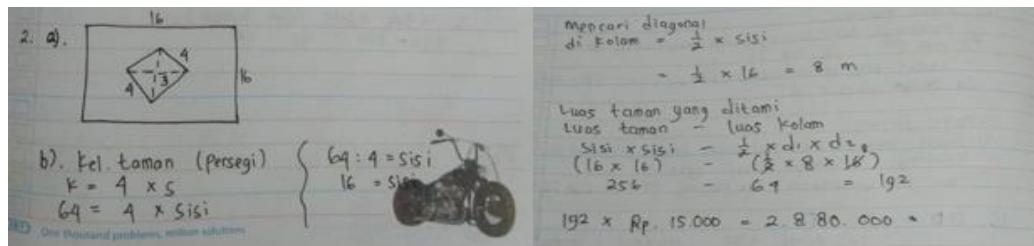 16
2. a).
4
3
4
16
b). Kel. taman (persegi)
K = 4 x S
64 = 4 x sisi
64 : 4 = sisi
16 = sisi
One thousand problems, million solutions
mencari diagonal
di kolam = 1/2 x sisi
= 1/2 x 16 = 8 m
Luas taman yang ditami
Luas taman - luas kolam
sisi x sisi - 1/2 x d1 x d2
(16 x 16) - (1/2 x 8 x 16)
256 - 64 = 192
192 x Rp. 15.000 = 2.880.000